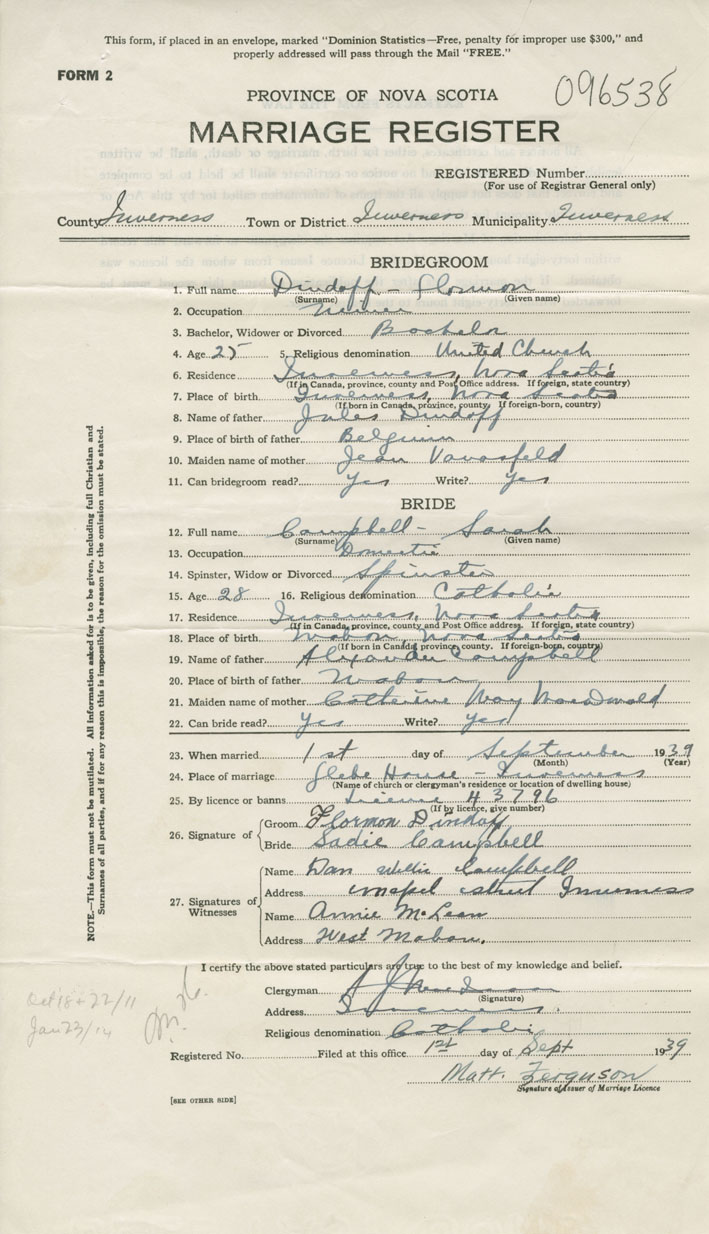 This form, if placed in an envelope, marked "Dominion Statistics—Free, penalty for improper use $300," and
properly addressed will pass through the Mail "FREE."
FORM 2
096538
PROVINCE OF NOVA SCOTIA
MARRIAGE REGISTER
REGISTERED Number
(For use of Registrar General only)
County Inverness Town or District Inverness Municipality Inverness
BRIDEGROOM
1. Full name Dindoff - Flormon
(Surname) (Given name)
2. Occupation Miner
3. Bachelor, Widower or Divorced Bachelor
4. Age 25 5. Religious denomination United Church
6. Residence Inverness, Nova Scotia
(If in Canada, province, county and Post Office address. If foreign, state country)
7. Place of birth Inverness, Nova Scotia
(If born in Canada, province, county. If foreign-born, country)
8. Name of father Jules Dindoff
9. Place of birth of father Belgium
10. Maiden name of mother Jean
11. Can bridegroom read? Yes Write? Yes
BRIDE
12. Full name Campbell - Sarah
(Surname) (Given name)
13. Occupation Domestic
14. Spinster, Widow or Divorced Spinster
15. Age 28 16. Religious denomination Catholic
17. Residence Inverness, Nova Scotia
(If in Canada, province, county and Post Office address. If foreign, state country)
18. Place of birth Mabou, Nova Scotia
(If born in Canada, province, county. If foreign-born, country)
19. Name of father Alexander Campbell
20. Place of birth of father Mabou
21. Maiden name of mother Catherine May MacDonald
22. Can bride read? Yes Write? Yes
23. When married 1st day of September 1939
(Month) (Year)
24. Place of marriage Glebe House - Inverness
(Name of church or clergyman's residence or location of dwelling house)
25. By licence or banns License 43796
(If by licence, give number)
26. Signature of Groom Flormon Dindoff
Bride Sadie Campbell
27. Signatures of Witnesses Name Dan Willie Campbell
Address street Inverness
Name Annie McLean
Address West Mabou.
I certify the above stated particulars are true to the best of my knowledge and belief.
Clergyman
(Signature)
Address Inverness.
Religious denomination Catholic
Registered No. Filed at this office 1st day of Sept 1939
Matt. Ferguson
Signature of Issuer of Marriage Licence
[SEE OTHER SIDE]
NOTE.—This form must not be mutilated. All information asked for is to be given, including full Christian and
Surnames of all parties, and if for any reason this is impossible, the reason for the omission must be stated.
Oct 18 + 22/11
Jan 23/14